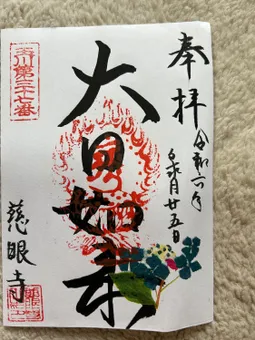 奉拝
令和六年
水無月廿五日
大日如来
玉川第三十七番
慈眼寺